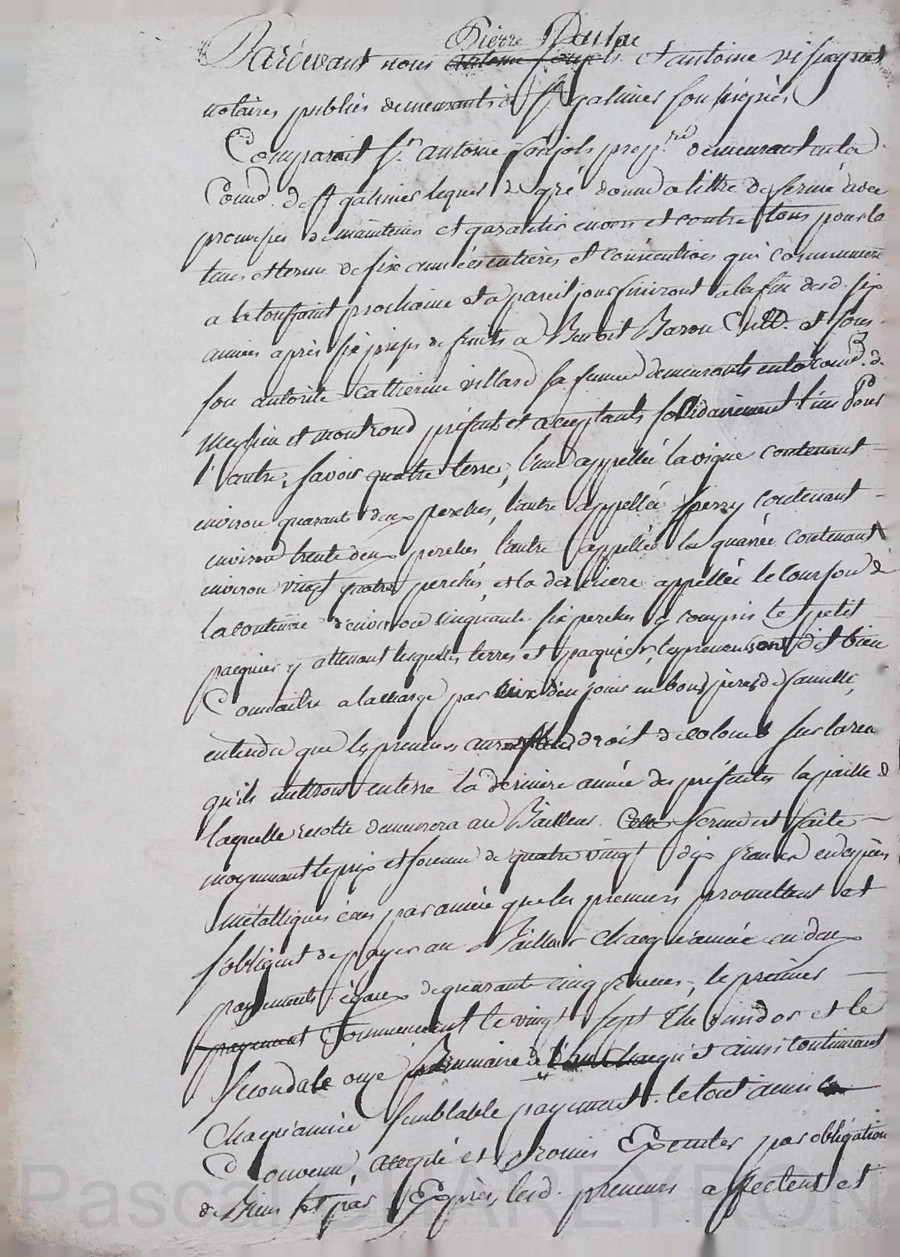 Pierre
Pardevant nous antoine et antoine
notaires publics demeurants à St galmier soussignés
Comparait Sr. antoine prop.re demeurant en la
Comm.e de St galmier lequel de gré donne a tittre de ferme avec
promesse de maintenir et garantir envers et contre tous pour le
tems et terme de six années entieres et consecutives qui commenceront
a la toussaint prochaine et a pareil jour finiront a la fin desd. six
années après six prises de fruits a Benoit Baron Cult. et sous
son autorité Catherine villard sa femme demeurants en la Com.e de
Meylieu et montrond présents et acceptants solidairement l'un pour
l'autre, savoir quatre terres, l'une appellée la vigne contenant
environ quarante deux perches, l'autre appellée contenant
environ trente deux perches l'autre appellée la quarrée contenant
environ vingt quatre perches et la derniere appellée le de
la contenue d'environ cinquante six perches y compris le petit
pacquier y attenant lesquelles terres et pacquier les preneurs ont dit bien
Connaitre a la charge par eux d'en jouir en bons peres de famille,
entendu que les preneurs auront droit de colons sur
qu'ils mettront en terre la derniere année des présentes la paille de
laquelle recolte demeurera au Bailleur. Cette ferme est faite
moyennant le prix et somme de quatre vingt dix francs en espèces
métalliques par année que les preneurs promettent et
s'obligent de payer au Bailleur chaque année en deux
payements égaux de quarante cinq francs, le premier
payement commencent le vingt sept et le
Second le onze et ainsi continuant
chaque année semblable payement. le tout ainsi
Convenu accepté et promis Executer par obligation
de Biens et par Exprès, lesd. preneurs affectent et
Pascal CHAREYRON